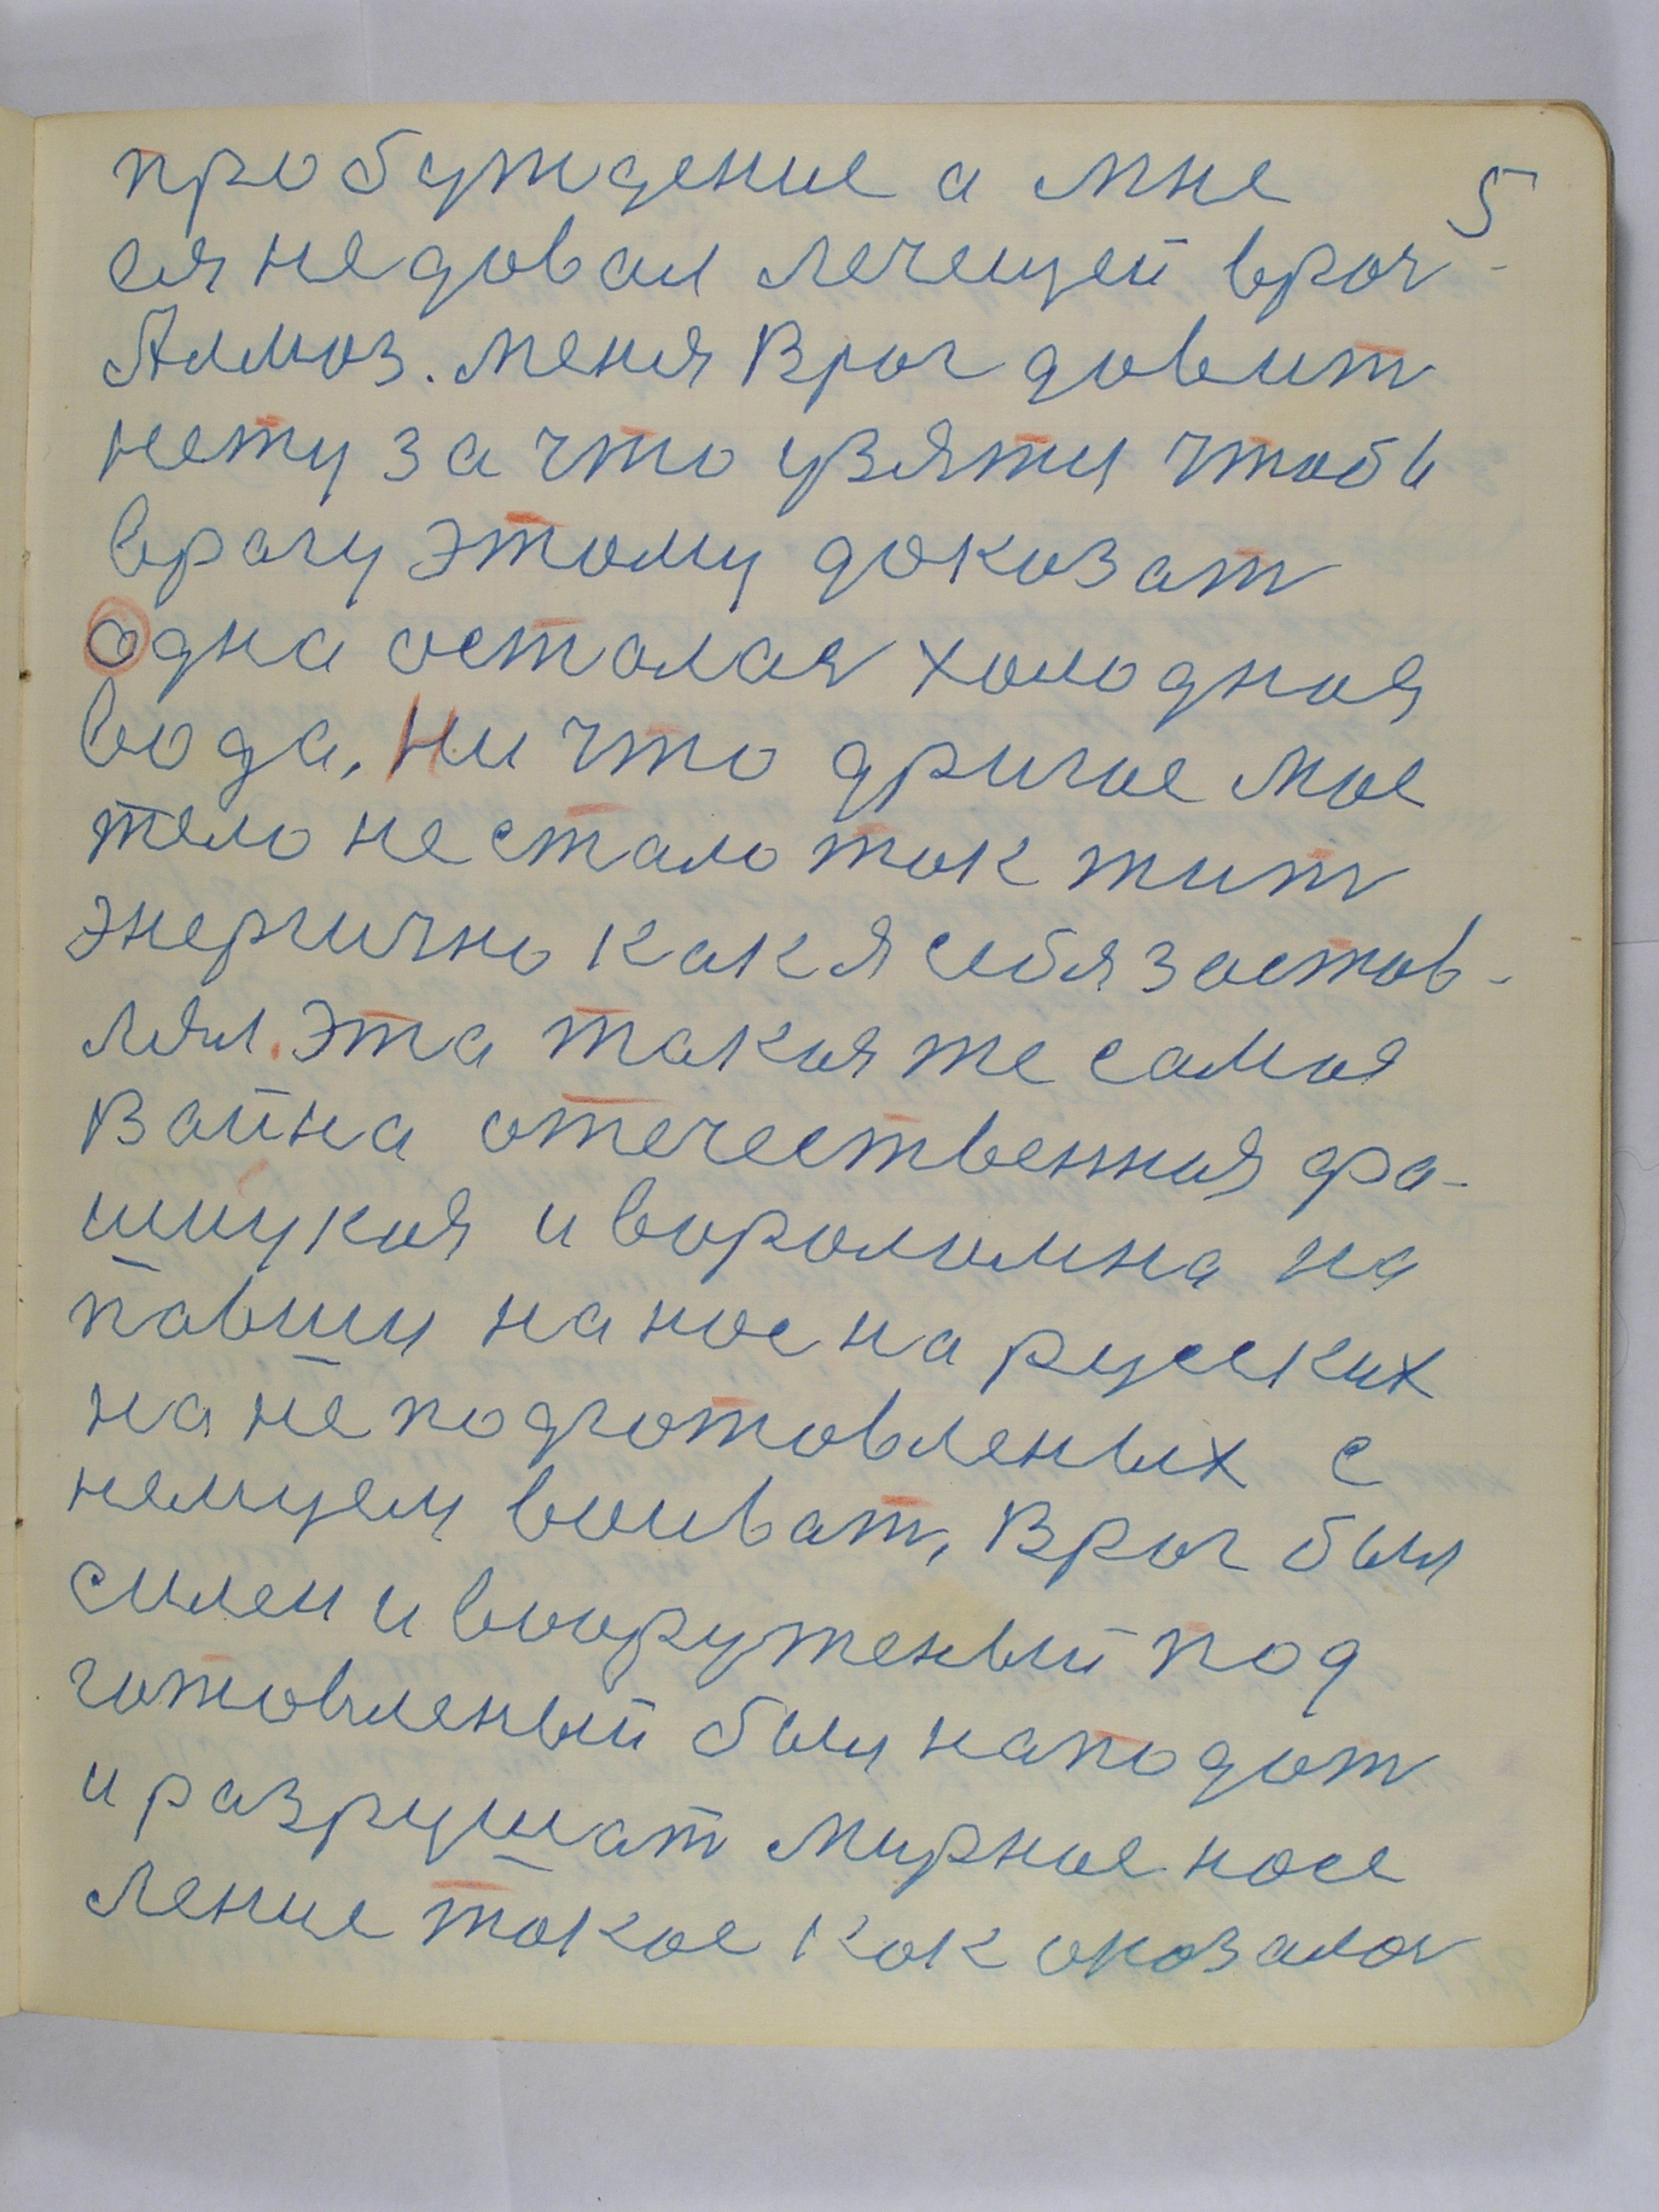 пробуждение а мне 5
ся недовал лечещей врач
Алмоз. меня Враг довит
нету за что узяти чтобы
врагу этому доказат
одна осталая холодная
вода, Ни что другое мое
тело не стало так жит
энергично как я себя застов-
лял. Эта такая же самая
Война отечественная фа-
шиская и вороломна на
павши на нас на русских
на не подготовленых с
немцем воиват, Враг был
силен и вооруженый под
готовленый был наподат
и разрушат мирное насе
ление такое как оказалос